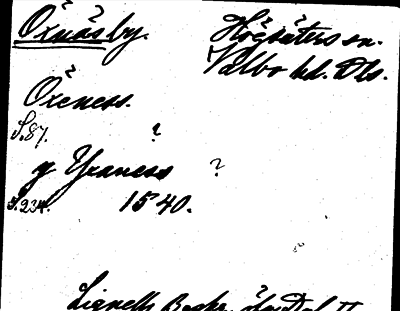 Öxnäs by. Högsäters sn.
Valbo hd. Dls.
Öxeness.
S.87. ?
y Yxaness ?
S.234. 1540.
Lignells Beskr. öfver Dal II